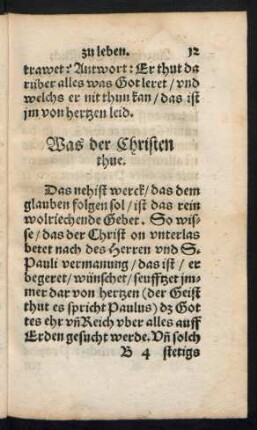 zu leben. 12
trawet? Antwort: Er thut da
rüber alles was Got leret / vnd
welchs er nit thun kan / das ist
jm von hertzen leid.
Was der Christen
thue.
Das nehist werck / das dem
glauben folgen sol / ist das rein
wolriechende Gebet. So wis-
se / das der Christ on vnterlas
betet nach des Herren vnd S.
Pauli vermanung / das ist / er
begeret / wünschet / seufftzet jm-
mer dar von hertzen (der Geist
thut es spricht Paulus) dz Got
tes ehr vñ Reich vber alles auff
Erden gesucht werde. Vñ solch
B 4 stetigs